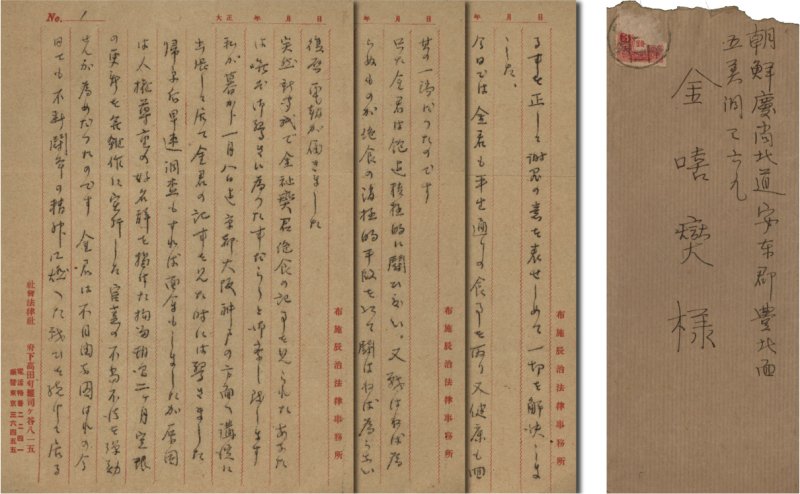 No. 1
大正　年　月　日
復啓 電報が届きました
突然新聞紙で金祉燮君絶食の記事を見られたあなた
は嘸お御驚きに為つた事だらうと御察し致します
私が暮から一月八日迄京都大阪神戸の方面へ講演に
出張して居て金君の記事を見た時には驚きました
帰京后早速調査もすれば面会もしましたが原因
は人権尊重の好名辞を揚げた拘留期間二ヶ月制限
の更新を無雑作に実行した官憲の不当不法を弾劾
せんが為めだつたのです 金君は不自由な囚はれの今
日でも不断闘争の精神に燃へた戦ひを続けて居る
布施辰治法律事務所
社會法律社
府下高田町雑司ヶ谷八一五
電話
振替東京三六四五五
年　月　日
其の一端だつたのです
只だ金君は飽迄積極的に闘ひたい、又戦はねば為
らぬものが絶食の消極的手段を以て闘はねば為らない
布施辰治法律事務所
年　月　日
る事を正して謝罪の意を表せしめて一切を解決しま
した、
今日では金君も平生通りの食事を取り又健康も回
布施辰治法律事務所
朝鮮慶尚北道安東郡豊北面
五美洞
金 嘻 燮 様